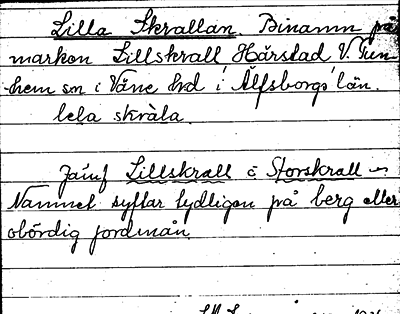 Lilla Skrallan. Binamn på
marken Lillskrall Hårstad V. Tun-
hem sn i Väne hd i Älfsborgs län.
lela skràla.
Jämf Lillskrall o Storskrall
Namnet syftar tydligen på berg eller
obördig jordmån.